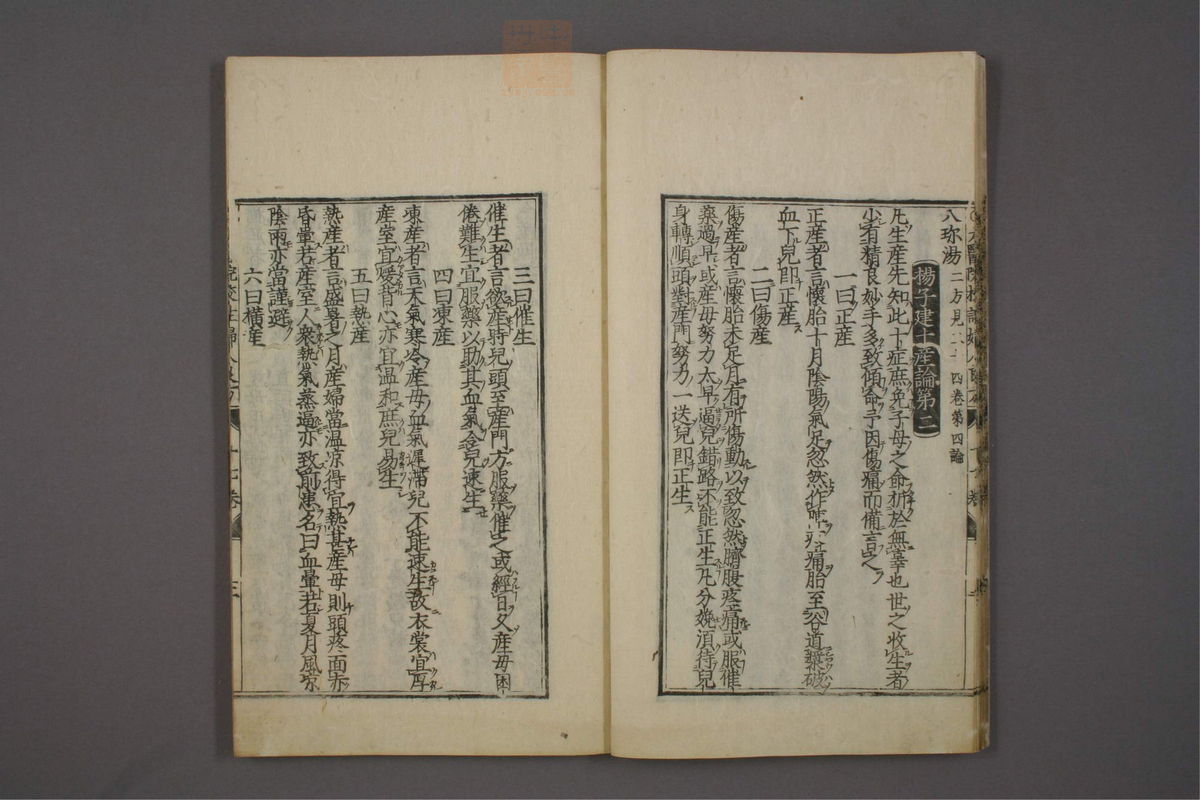 八珎湯二方見二十四卷第四論
楊子建十産論第二
凢生産先知此十症庶免子母之命折於無辜也世之收生者
少有精良妙手多致傾命予因傷痛而備言之
一曰正産
正産者言懷胎十月陰陽氣足忽然作陣疼痛胎至谷道漿破
血下兒即正産
二曰傷産
傷産者言懷胎未足月有所傷動以致忽然臍腹疼痛或服催
藥過早或産母努力太早逼兒錯路不能正生凢分娩湏待兒
身轉順頭對産門努力一送兒即正生
三曰催生
催生者言欲産時兒頭至産門方服藥催之或經日久産母困
倦難生宜服藥以助其血氣令兒速生
四曰凍産
凍産者言天氣寒冷産母血氣遲滯兒不能速生故衣裳宜厚
産室宜煖背心亦宜温和庶兒易生
五曰熱産
熱産者言盛暑之月産婦當温凉得宜熱甚産母則頭疼面赤
昏暈若産室人衆熱氣蒸逼亦致前患名曰血暈若夏月風凉
陰雨亦當謹避
六曰橫産
十七卷
三